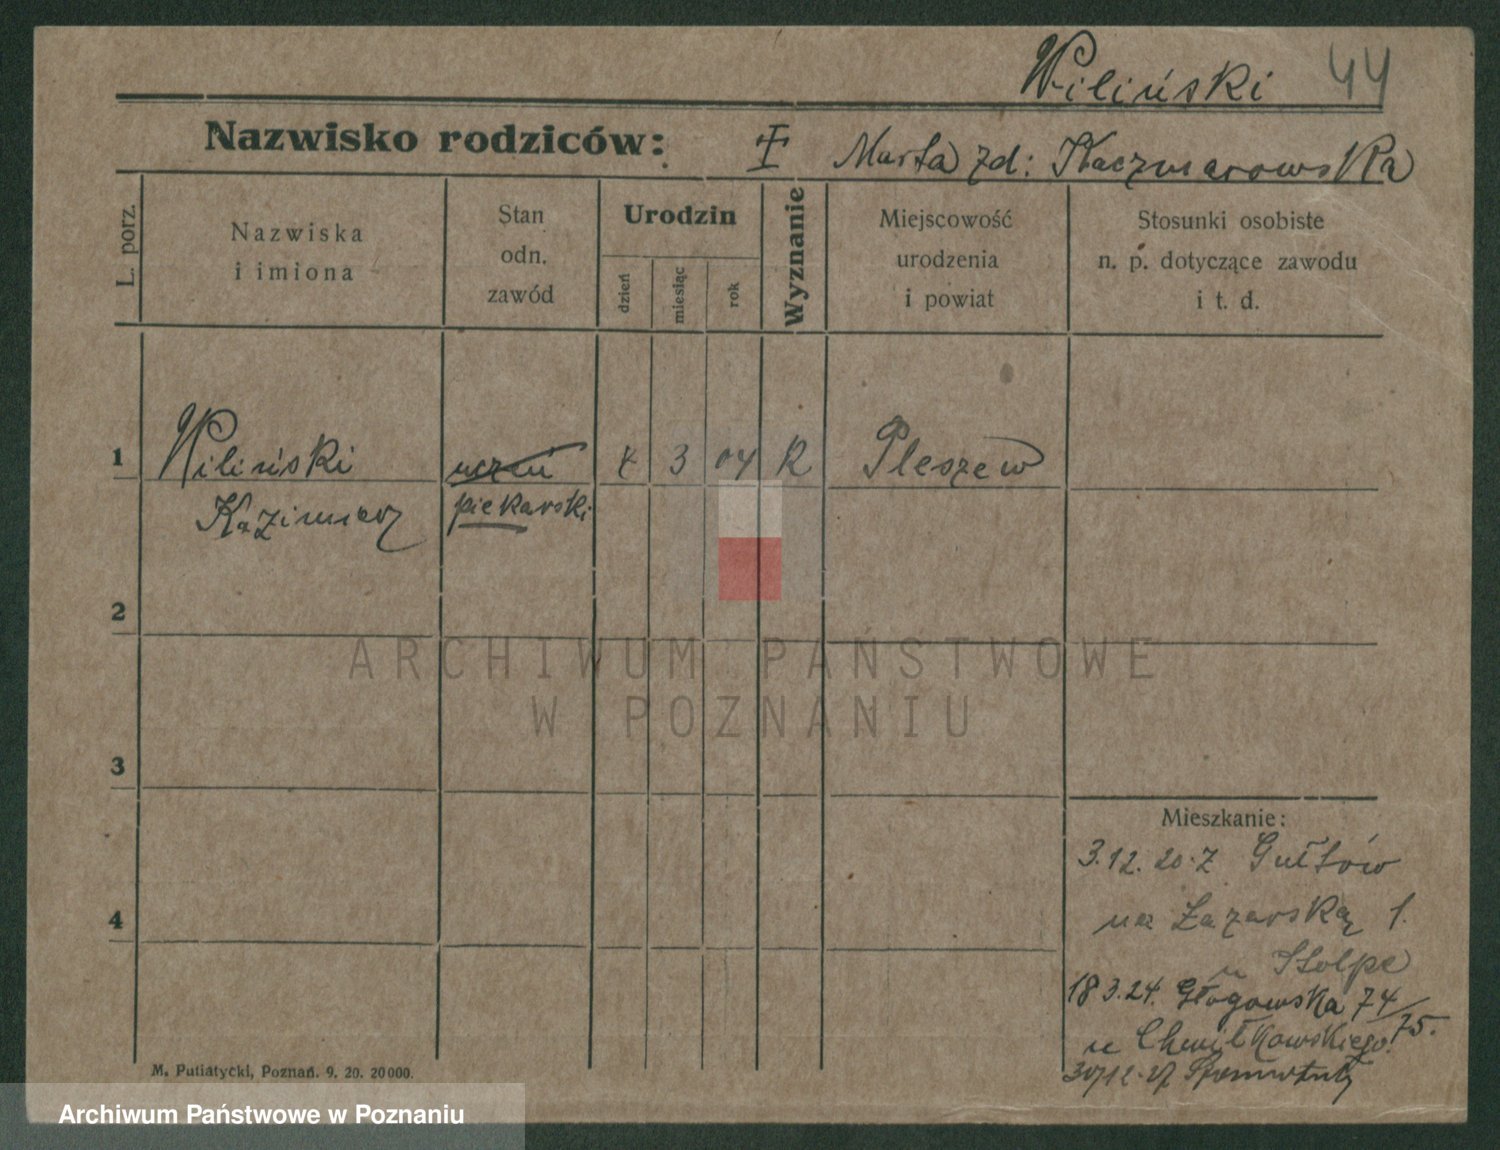 Wiliński 44
Nazwisko rodziców: I Marta zd: Kaczmarowska
L. porz.
Nazwiska
i imiona
Stan
odn.
zawód
Urodzin
dzień
miesiąc
rok
Wyznanie
Miejscowość
urodzenia
i powiat
Stosunki osobiste
n. p. dotyczące zawodu
i t. d.
1 Wiliński uczeń 4 3 04 R Pleszew
Kazimierz piekarski
2
ARCHIWUM PAŃSTWOWE
W POZNANIU
3
Mieszkanie:
3.12.20. z Gułtów
4
na Łazarską 1.
u Stolpe
18 3.24. Głogowska 74/75.
u Chmiłkowskiego
30/12.27
M. Putiatycki, Poznań. 9. 20. 20000.
Archiwum Państwowe w Poznaniu